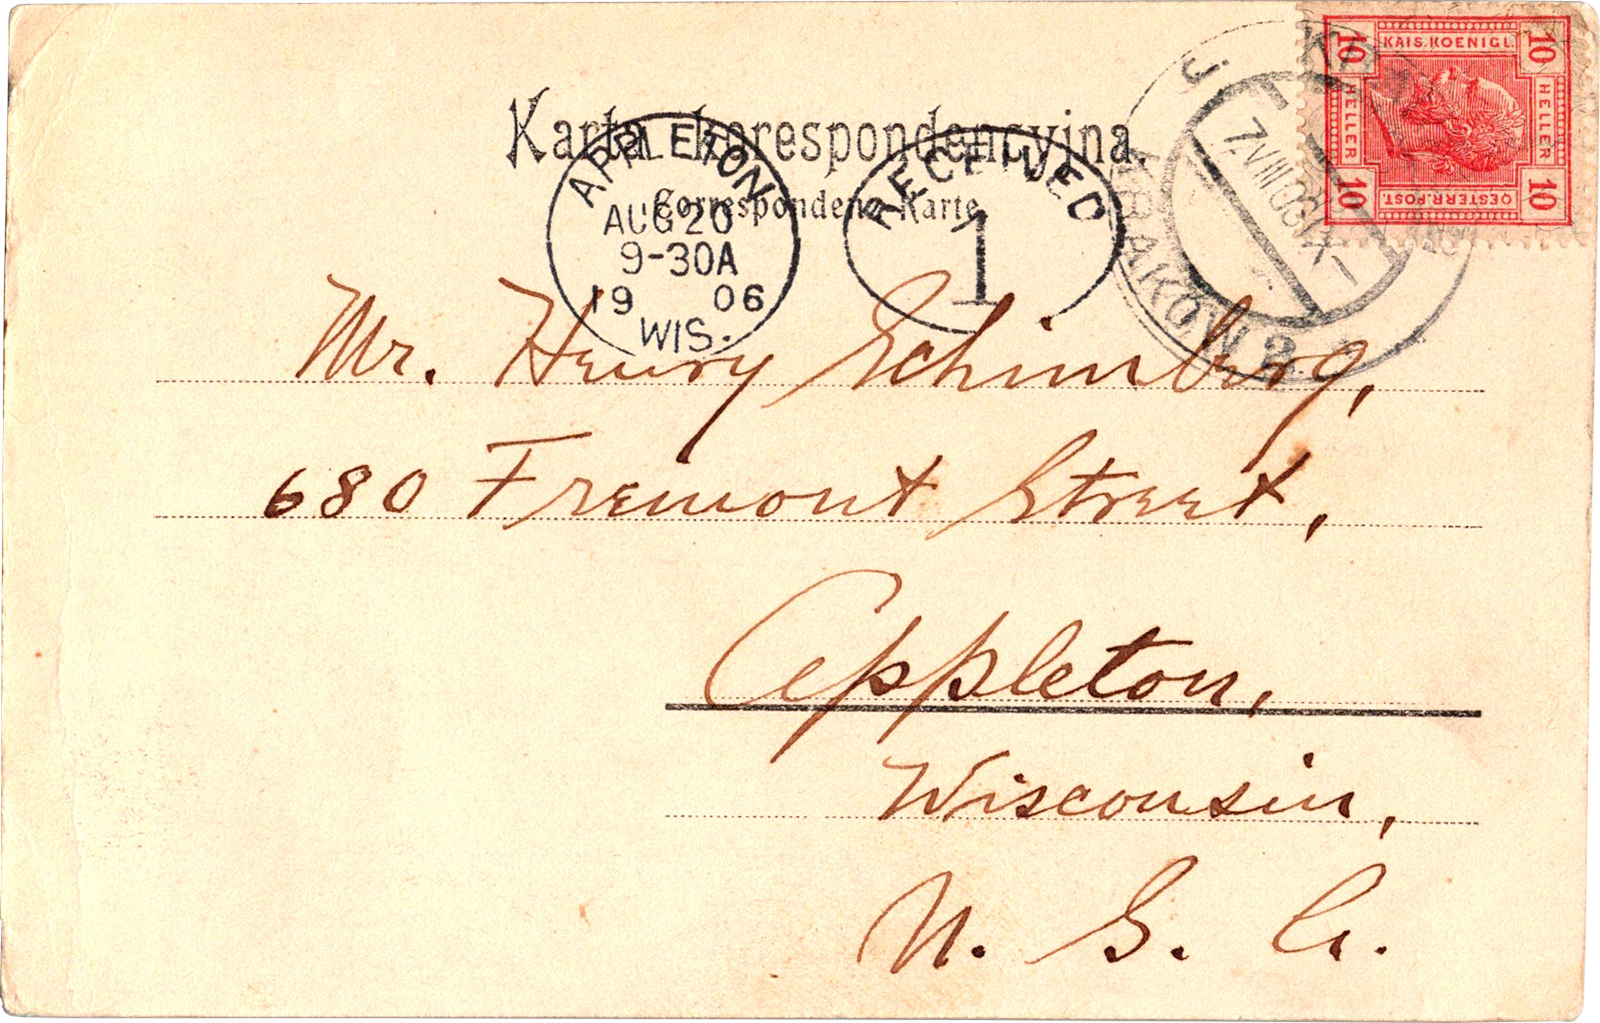 Karta korespondencyjna.
Correspondenz-Karte
APPLETON
AUG 20
9-30A
19 06
WIS.
RECEIVED
1
KRAKÓW 2
KAIS. KOENIGL.
10 HELLER 10
10 HELLER 10
OESTERR. POST.
Mr. Henry Schimberg,
680 Fremont Street,
Appleton,
Wisconsin,
U. S. A.